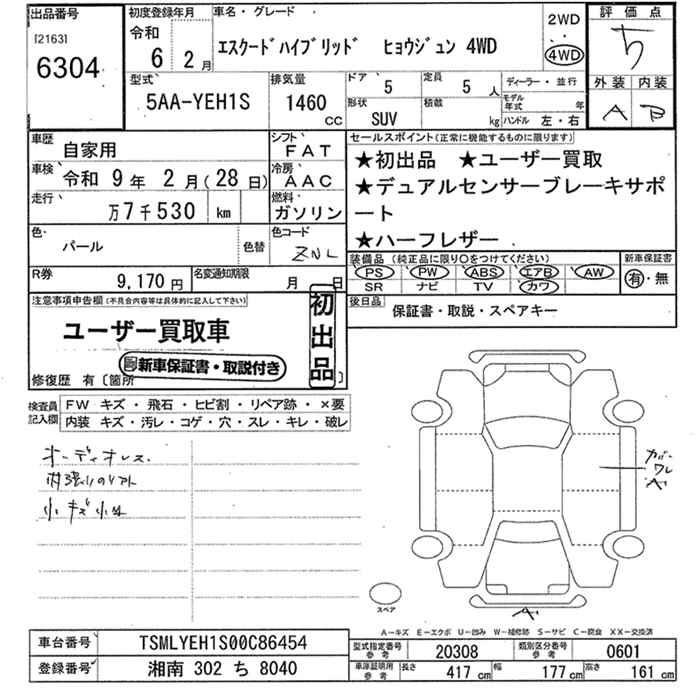 出品番号
[2163]
6304
初度登録年月
令和
6 2月
車名・グレード
ｴｽｸｰﾄﾞﾊｲﾌﾞﾘｯﾄﾞ ﾋｮｳｼﾞｭﾝ 4WD
2WD
4WD
評価点
5
外装 内装
A B
型式
5AA-YEH1S
排気量
1460
cc
ドア
5
定員
5 人
形状
SUV
積載
kg
ディーラー・並行
モデル年式 年
ハンドル 左・右
車歴
自家用
シフト
FAT
車検
令和 9年 2月(28日)
冷房
AAC
走行
万7千530 km
燃料
ガソリン
色
パール
色替
色コード
ZNL
R券
9,170円
名変通知期限
月 日
セールスポイント(正常に機能するものに限ります)
★初出品 ★ユーザー買取
★デュアルセンサーブレーキサポ
ート
★ハーフレザー
装備品 (純正品に限り○をつけてください)
PS PW ABS エアB AW
SR ナビ TV カワ
新車保証書
有・無
後日品
保証書・取説・スペアキー
注意事項申告欄(不具合内容等は具体的に記入して下さい)
ユーザー買取車
初出品
新車保証書・取説付き
修復歴 有〔箇所 〕
検査員
記入欄
FW キズ・飛石・ヒビ割・リペア跡・×要
内装 キズ・汚レ・コゲ・穴・スレ・キレ・破レ
オーディオレス
小キズ小凹
カバー
ワレ
A1
スペア
A1
A－キズ E－エクボ U－凹み W－補修跡 S－サビ C－腐食 XX－交換済
車台番号
TSMLYEH1S00C86454
登録番号
湘南 302 ち 8040
型式指定番号
参考
20308
類別区分番号
参考
0601
車庫証明用
参考
長さ 417 cm 幅 177 cm 高さ 161 cm